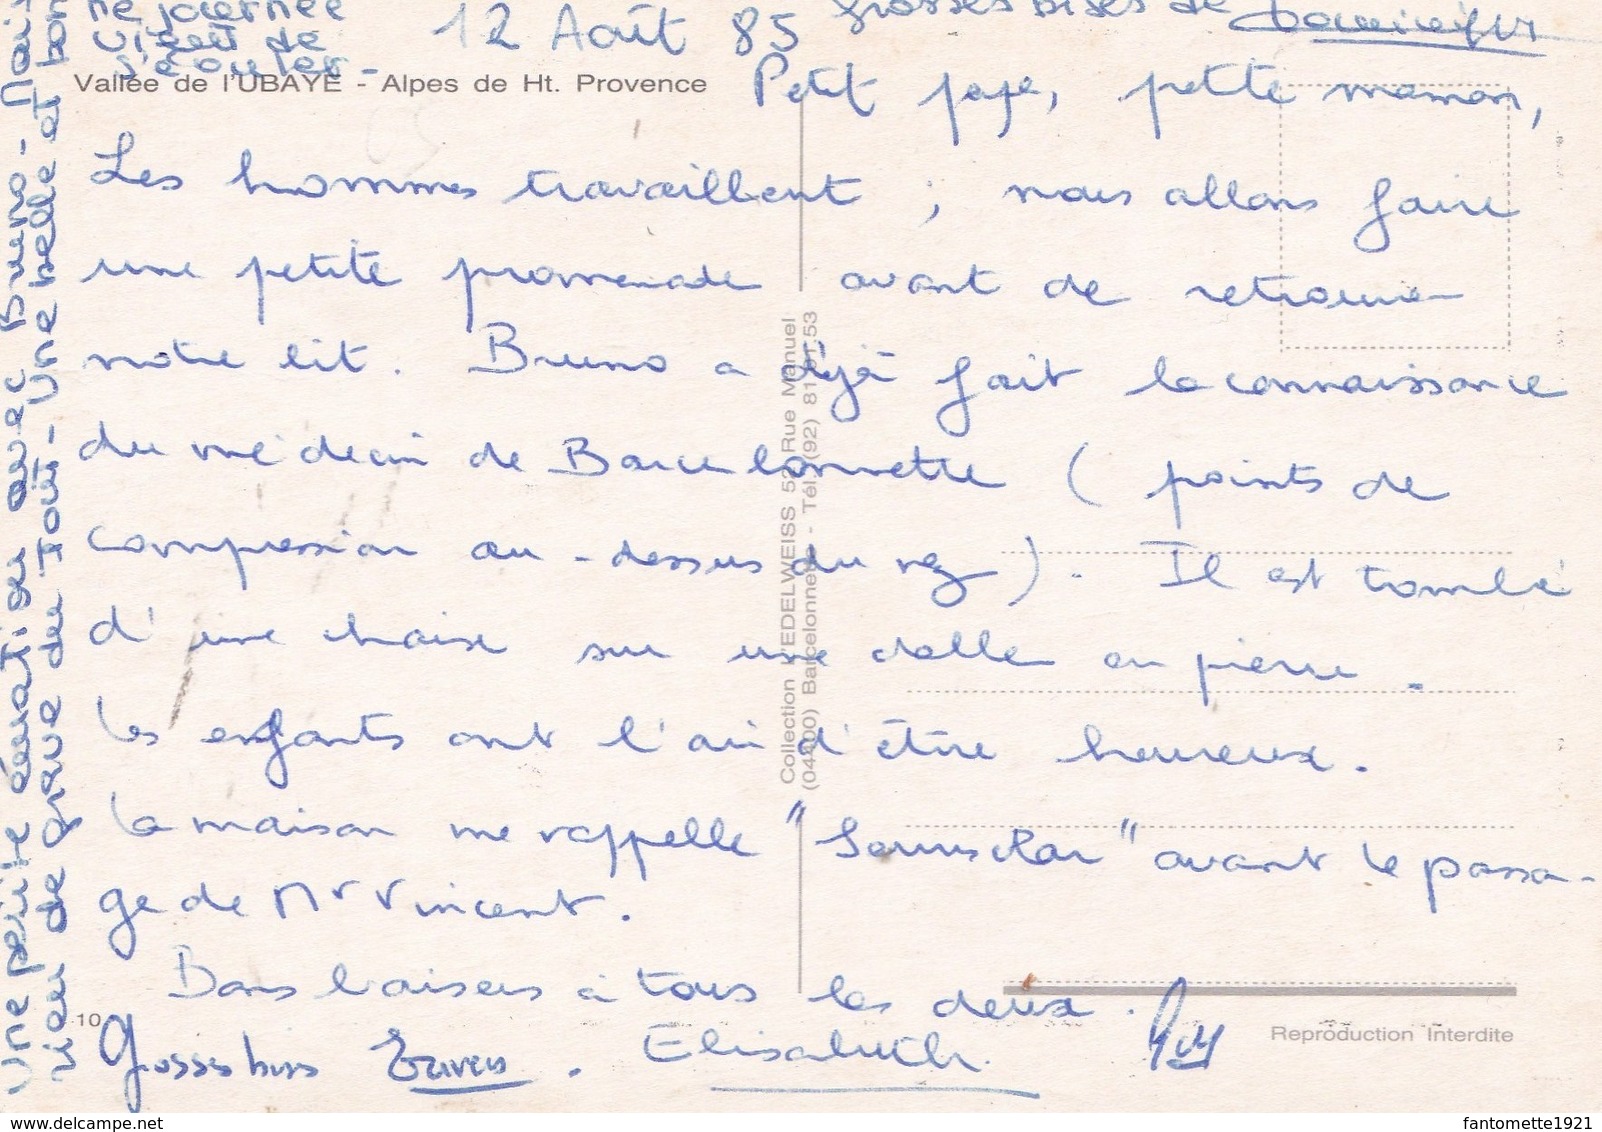 12 Août 85
Grosses bises de Dominique
Vallée de l'UBAYE - Alpes de Ht. Provence
Petit papa, petite maman,
Les hommes travaillent ; nous allons faire
une petite promenade avant de retrouver
notre lit. Bruno a déjà fait la connaissance
du médecin de Barcelonnette ( points de
compression au-dessus du nez ). Il est tombé
d'une chaise sur une dalle en pierre.
Les enfants ont l'air d'être heureux.
La maison me rappelle " " avant le passa-
ge de Mr Vincent.
Bons baisers à tous les deux.
Elisabeth
Grosses bises
Une petite émotion avec Bruno - Mais
rien de grave du tout - Une belle et bon
ne journée
vient de
s'écouler -
Collection L'EDELWEISS 52 Rue Manuel
(04400) Barcelonnette - Tél. (92) 81 53
10
Reproduction Interdite
www.delcampe.net
fantomette1921